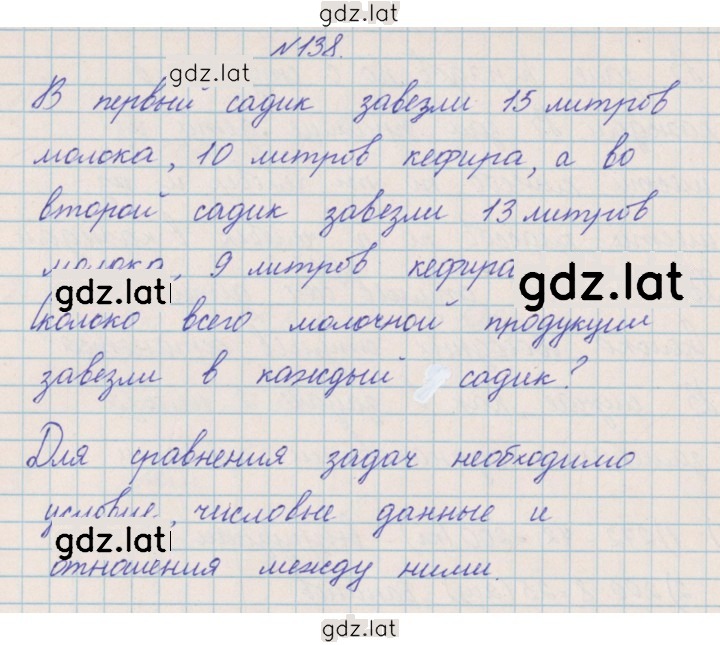 gdz.lat
№138.
gdz.lat
В первый садик завезли 15 литров
молока, 10 литров кефира, а во
второй садик завезли 13 литров
молока, 9 литров кефира
gdz.lat
gdz.lat
Сколоко всего молочной продукции
завезли в каждый садик?
Для сравнения задач необходимо
условие, числовые данные и
gdz.lat
отношения между ними.
gdz.lat